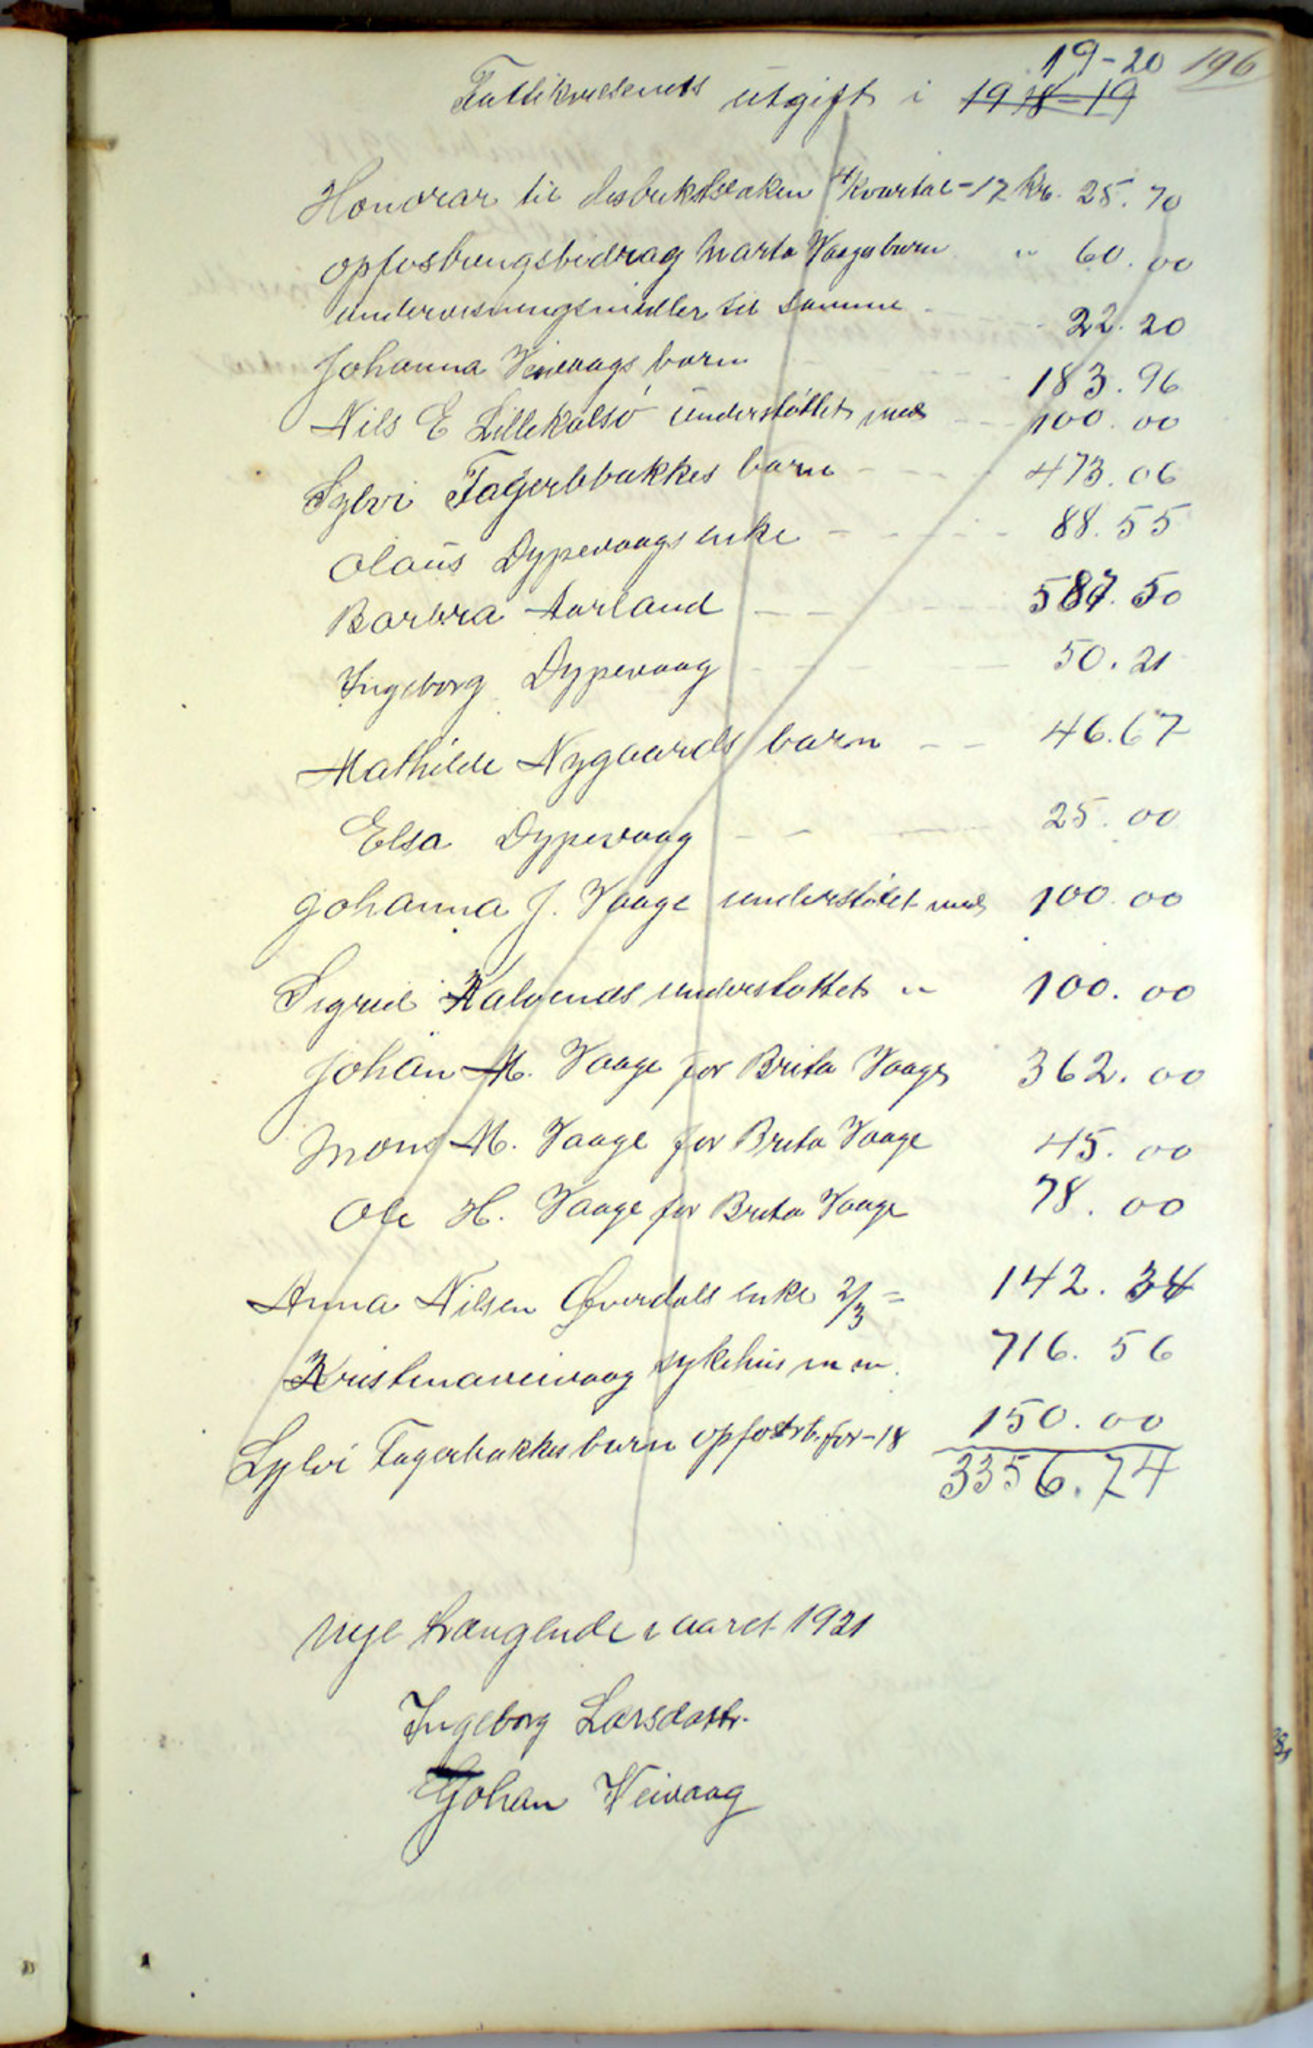 19-20 196
Fattikvæsenets utgift i 1918-19
Honorar til desbrikslæken 4 kvartal-17 kr. 25.70
opfostrungsbedrag Marta Vaages barn " 60.00
undervisningsmidler til samme 22.20
Johanna Veivaags barn 183.96
Nils E Lillekalsö understöttet med 100.00
Sylvi Fagerbakkes barn 473.06
Olaus Dypevaags enke 88.55
Barbra Aarland 587.50
Ingeborg Dypevaag 50.21
Mathilde Nygaards barn 46.67
Elsa Dypevaag 25.00
Johanna J. Vaage understötet med 100.00
Sigrid Kalvenes understottet " 100.00
Johan M. Vaage for Brita Vaage 362.00
Mons M. Vaage for Brita Vaage 45.00
Ole H. Vaage for Brita Vaage 78.00
Anna Nilsen Øverdals enke 2/3 = 142.34
Kristinaveivaag sykehus m m. 716.56
Sylvi Fagerbakkes barn opfostr b. for-18 150.00
3356.74
Nye trængende i aaret 1921
Ingeborg Larsdattr.
Johan Veivaag